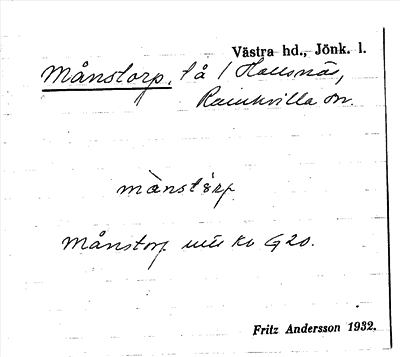 Västra hd., Jönk. l.
Månstorp, tå 1 Hallsnäs,
Ramkvilla sn.
månstórp
Månstorp utu Kv G20.
Fritz Andersson 1932.